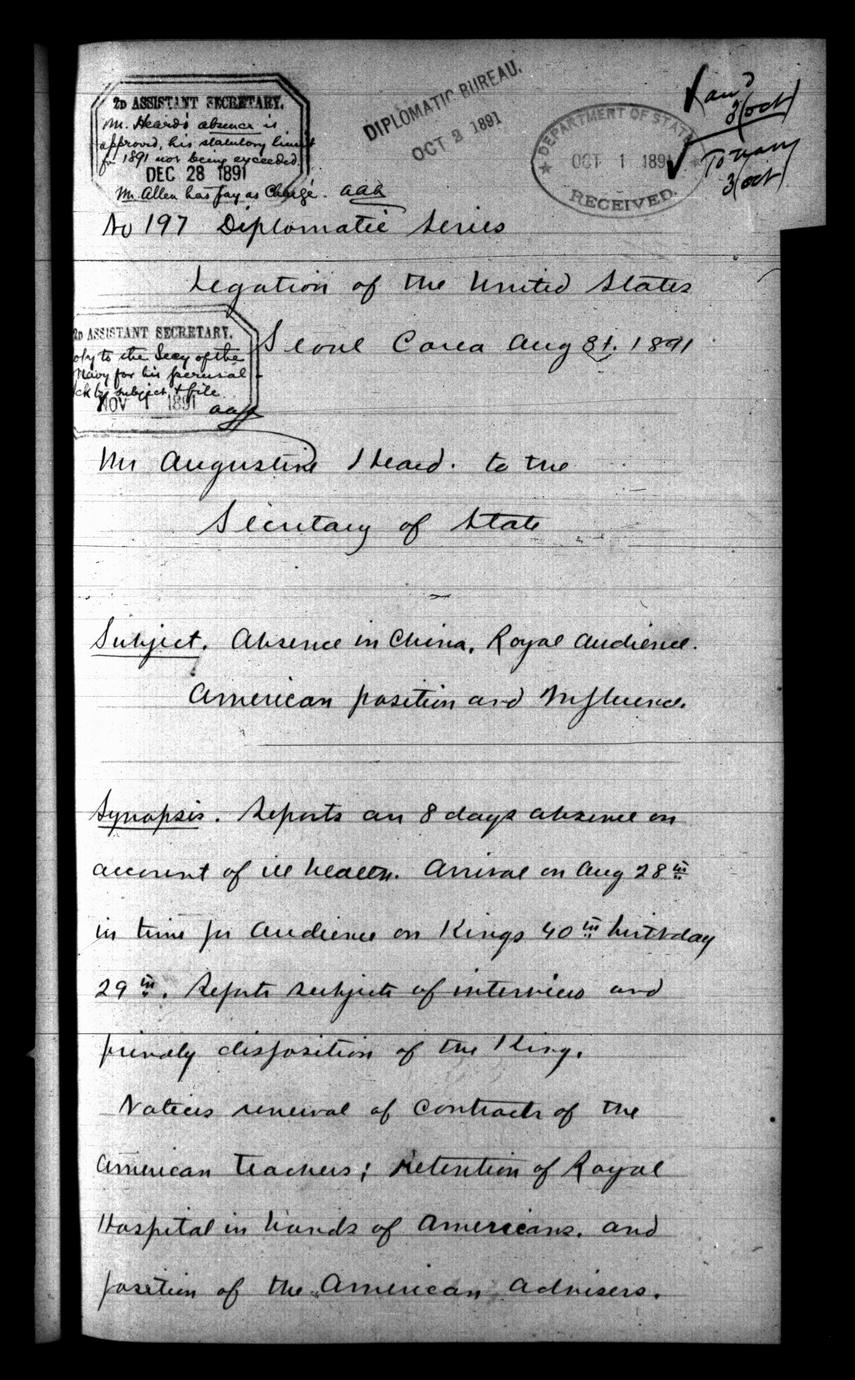 2D ASSISTANT SECRETARY.
Mr. Heard's absence is
approved, his statutory limit
for 1891 not being exceeded.
DEC 28 1891
Mr. Allen has pay as Chargé. aaa
DIPLOMATIC BUREAU.
OCT 2 1891
DEPARTMENT OF STATE
OCT 1 1891
RECEIVED.
3 Oct
To navy
3 Oct
No 197 Diplomatic Series
Legation of the United States
Seoul Corea Aug 31. 1891
2D ASSISTANT SECRETARY.
to the Secy of the
Navy for his perusal
by subject & file
NOV 1 1891
aaa
Mr Augustine Heard. to the
Secretary of State
Subject. Absence in China, Royal Audience.
American position and Influence.
Synopsis. Reports an 8 days absence on
account of ill health. Arrival on Aug 28th
in time for Audience on Kings 40th birthday
29th. Reports subjects of interview and
friendly disposition of the King.
Notices renewal of contracts of the
American teachers; Retention of Royal
Hospital in hands of Americans. and
position of the American advisers.